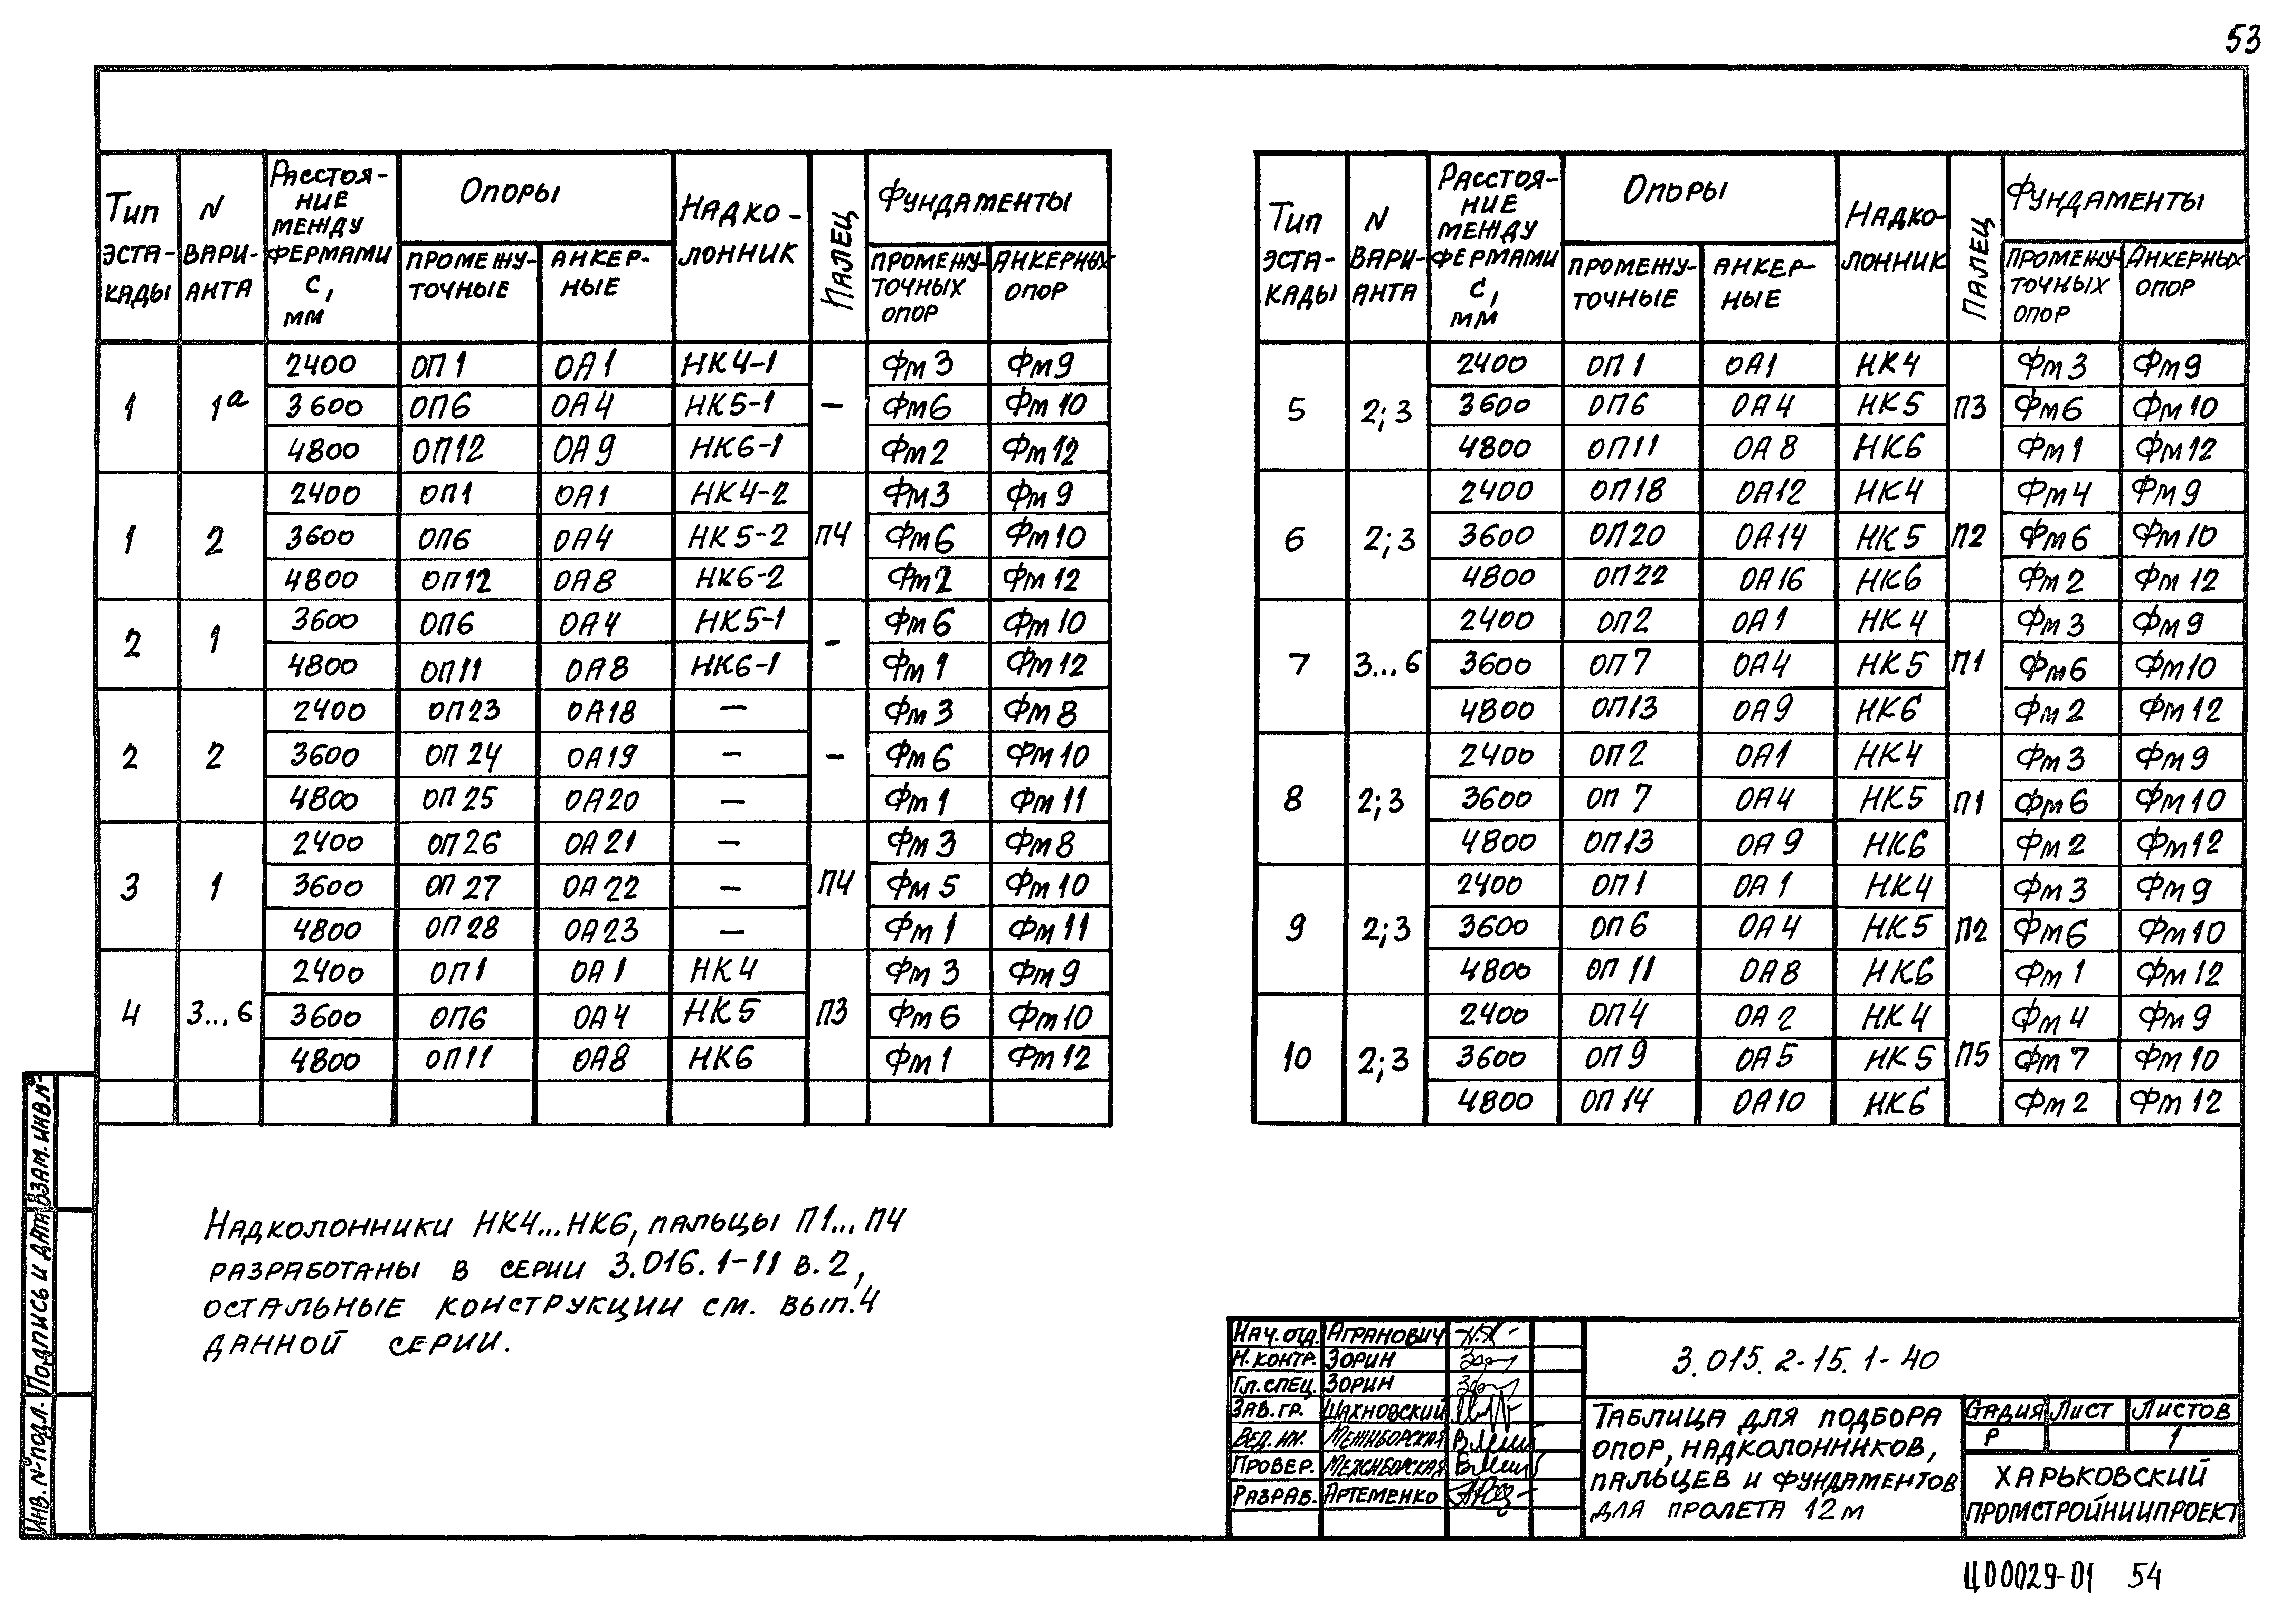 53
Тип эста- кады | N вари- анта | Расстоя- ние между фермами с, мм | Опоры | Надко- лонник | Палец | Фундаменты
промежу- точные | анкер- ные | промежу- точных опор | анкерных опор
1 | 1а | 2400 | ОП1 | ОА1 | НК4-1 | – | Фм3 | Фм9
3600 | ОП6 | ОА4 | НК5-1 | Фм6 | Фм10
4800 | ОП12 | ОА9 | НК6-1 | Фм2 | Фм12
1 | 2 | 2400 | ОП1 | ОА1 | НК4-2 | П4 | Фм3 | Фм9
3600 | ОП6 | ОА4 | НК5-2 | Фм6 | Фм10
4800 | ОП12 | ОА8 | НК6-2 | Фм2 | Фм12
2 | 1 | 3600 | ОП6 | ОА4 | НК5-1 | – | Фм6 | Фм10
4800 | ОП11 | ОА8 | НК6-1 | Фм1 | Фм12
2 | 2 | 2400 | ОП23 | ОА18 | – | – | Фм3 | Фм8
3600 | ОП24 | ОА19 | – | Фм6 | Фм10
4800 | ОП25 | ОА20 | – | Фм1 | Фм11
3 | 1 | 2400 | ОП26 | ОА21 | – | П4 | Фм3 | Фм8
3600 | ОП27 | ОА22 | – | Фм5 | Фм10
4800 | ОП28 | ОА23 | – | Фм1 | Фм11
4 | 3...6 | 2400 | ОП1 | ОА1 | НК4 | П3 | Фм3 | Фм9
3600 | ОП6 | ОА4 | НК5 | Фм6 | Фм10
4800 | ОП11 | ОА8 | НК6 | Фм1 | Фм12
Тип эста- кады | N вари- анта | Расстоя- ние между фермами с, мм | Опоры | Надко- лонник | Палец | Фундаменты
промежу- точные | анкер- ные | промежу- точных опор | Анкерных опор
5 | 2;3 | 2400 | ОП1 | ОА1 | НК4 | П3 | Фм3 | Фм9
3600 | ОП6 | ОА4 | НК5 | Фм6 | Фм10
4800 | ОП11 | ОА8 | НК6 | Фм1 | Фм12
6 | 2;3 | 2400 | ОП18 | ОА12 | НК4 | П2 | Фм4 | Фм9
3600 | ОП20 | ОА14 | НК5 | Фм6 | Фм10
4800 | ОП22 | ОА16 | НК6 | Фм2 | Фм12
7 | 3...6 | 2400 | ОП2 | ОА1 | НК4 | П1 | Фм3 | Фм9
3600 | ОП7 | ОА4 | НК5 | Фм6 | Фм10
4800 | ОП13 | ОА9 | НК6 | Фм2 | Фм12
8 | 2;3 | 2400 | ОП2 | ОА1 | НК4 | П1 | Фм3 | Фм9
3600 | ОП7 | ОА4 | НК5 | Фм6 | Фм10
4800 | ОП13 | ОА9 | НК6 | Фм2 | Фм12
9 | 2;3 | 2400 | ОП1 | ОА1 | НК4 | П2 | Фм3 | Фм9
3600 | ОП6 | ОА4 | НК5 | Фм6 | Фм10
4800 | ОП11 | ОА8 | НК6 | Фм1 | Фм12
10 | 2;3 | 2400 | ОП4 | ОА2 | НК4 | П5 | Фм4 | Фм9
3600 | ОП9 | ОА5 | НК5 | Фм7 | Фм10
4800 | ОП14 | ОА10 | НК6 | Фм2 | Фм12
Надколонники НК4...НК6, пальцы П1...П4
разработаны в серии 3.016.1-11 в.2,
остальные конструкции см. вып.4
данной серии.
Взам. инв. №
Подпись и дата
Инв. № подл.
Нач. отд. Агранович
Н. контр. Зорин
Гл. спец. Зорин
Зав. гр. Шахновский
Вед. ин. Межиборская
Провер. Межиборская
Разраб. Артеменко
3.015.2-15.1-40
Таблица для подбора
опор, надколонников,
пальцев и фундаментов
для пролета 12м
Садия Лист Листов
Р 1
Харьковский
Промстройниипроект
Ц00029-01 54